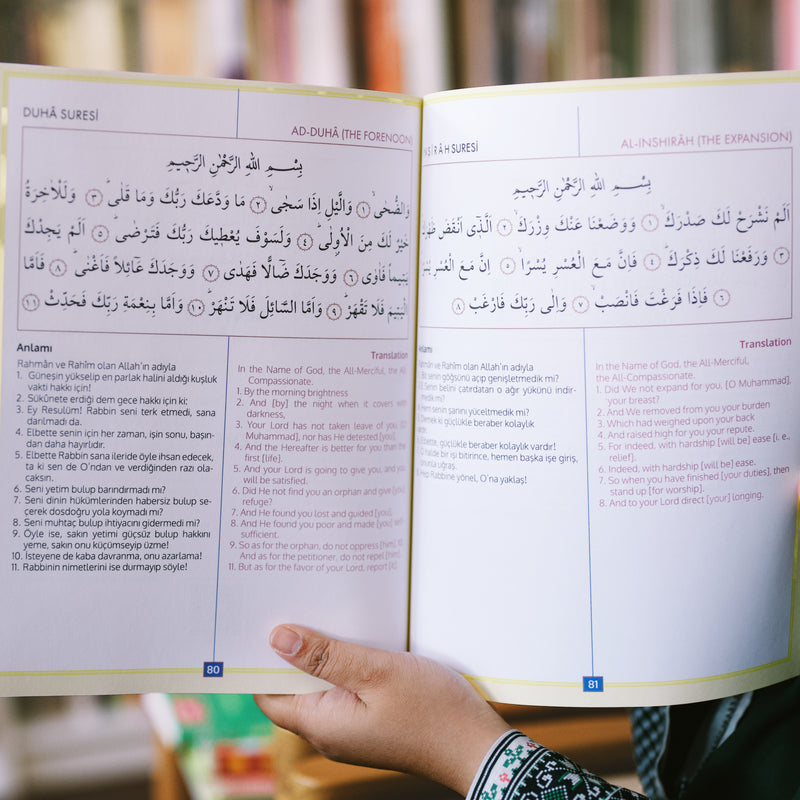 DUHÂ SURESİ
AD-DUHÂ (THE FORENOON)
بِسْــمِ اللهِ الرَّحْمٰنِ الرَّحِيمِ
وَالضُّحٰىۙ ﴿١﴾ وَالَّيْلِ اِذَا سَجٰىۙ ﴿٢﴾ مَا وَدَّعَكَ رَبُّكَ وَمَا قَلٰىۜ ﴿٣﴾ وَلَلْاٰخِرَةُ
خَيْرٌ لَكَ مِنَ الْاُو۫لٰىۜ ﴿٤﴾ وَلَسَوْفَ يُعْطِيكَ رَبُّكَ فَتَرْضٰىۜ ﴿٥﴾ اَلَمْ يَجِدْكَ
يَتِيماً فَاٰوٰىۖ ﴿٦﴾ وَوَجَدَكَ ضَٓالًّا فَهَدٰىۖ ﴿٧﴾ وَوَجَدَكَ عَٓائِلاً فَاَغْنٰىۜ ﴿٨﴾ فَاَمَّا
الْيَتِيمَ فَلَا تَقْهَرْۜ ﴿٩﴾ وَاَمَّا السَّٓائِلَ فَلَا تَنْهَرْۜ ﴿١٠﴾ وَاَمَّا بِنِعْمَةِ رَبِّكَ فَحَدِّثْ ﴿١١﴾
Anlamı
Rahmân ve Rahîm olan Allah'ın adıyla
1. Güneşin yükselip en parlak halini aldığı kuşluk
vakti hakkı için!
2. Sükûnete erdiği dem gece hakkı için ki:
3. Ey Resulüm! Rabbin seni terk etmedi, sana
darılmadı da.
4. Elbette senin için her zaman, işin sonu, başın-
dan daha hayırlıdır.
5. Elbette Rabbin sana ileride öyle ihsan edecek,
ta ki sen de O'ndan ve verdiğinden razı ola-
caksın.
6. Seni yetim bulup barındırmadı mı?
7. Seni dinin hükümlerinden habersiz bulup se-
çerek dosdoğru yola koymadı mı?
8. Seni muhtaç bulup ihtiyacını gidermedi mi?
9. Öyle ise, sakın yetimi güçsüz bulup hakkını
yeme, sakın onu küçümseyip üzme!
10. İsteyene de kaba davranma, onu azarlama!
11. Rabbinin nimetlerini ise durmayıp söyle!
Translation
In the Name of God, the All-Merciful, the All-
Compassionate.
1. By the morning brightness
2. And [by] the night when it covers with
darkness,
3. Your Lord has not taken leave of you, [O
Muhammad], nor has He detested [you].
4. And the Hereafter is better for you than the
first [life].
5. And your Lord is going to give you, and you
will be satisfied.
6. Did He not find you an orphan and give [you]
refuge?
7. And He found you lost and guided [you],
8. And He found you poor and made [you] self-
sufficient.
9. So as for the orphan, do not oppress [him]. 10.
And as for the petitioner, do not repel [him].
11. But as for the favor of your Lord, report [it].
80
İNŞİRÂH SURESİ
AL-INSHIRÂH (THE EXPANSION)
بِسْــمِ اللهِ الرَّحْمٰنِ الرَّحِيمِ
اَلَمْ نَشْرَحْ لَكَ صَدْرَكَۙ ﴿١﴾ وَوَضَعْنَا عَنْكَ وِزْرَكَۙ ﴿٢﴾ اَلَّذِٓي اَنْقَضَ ظَهْرَكَۙ
﴿٣﴾ وَرَفَعْنَا لَكَ ذِكْرَكَۜ ﴿٤﴾ فَاِنَّ مَعَ الْعُسْرِ يُسْراًۙ ﴿٥﴾ اِنَّ مَعَ الْعُسْرِ يُسْراًۜ
﴿٦﴾ فَاِذَا فَرَغْتَ فَانْصَبْۙ ﴿٧﴾ وَاِلٰى رَبِّكَ فَارْغَبْ ﴿٨﴾
Anlamı
Rahmân ve Rahîm olan Allah'ın adıyla
Biz senin göğsünü açıp genişletmedik mi?
Senin belini çatırdatan o ağır yükünü indir-
medik mi?
Hem senin şanını yüceltmedik mi?
Demek ki güçlükle beraber kolaylık
Elbette, güçlükle beraber kolaylık vardır!
O halde bir işi bitirince, hemen başka işe giriş,
onunla uğraş.
Hep Rabbine yönel, O'na yaklaş!
Translation
In the Name of God, the All-Merciful,
the All-Compassionate.
1. Did We not expand for you, [O Muhammad],
your breast?
2. And We removed from you your burden
3. Which had weighed upon your back
4. And raised high for you your repute.
5. For indeed, with hardship [will be] ease [i. e.,
relief].
6. Indeed, with hardship [will be] ease.
7. So when you have finished [your duties], then
stand up [for worship].
8. And to your Lord direct [your] longing.
81